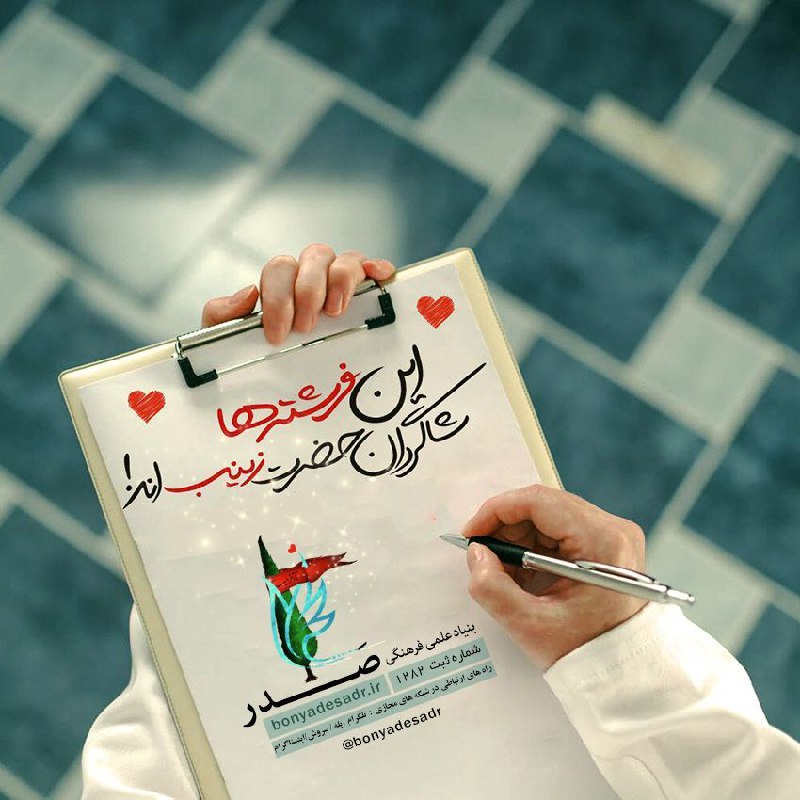 این فرشته‌ها
شاگردان حضرت زینب اند!
بنیاد علمی فرهنگی
صدر
شماره ثبت ۱۲۸۲
bonyadesadr.ir
راه های ارتباطی در شبکه های مجازی : تلگرام بله/سروش/اینستاگرام
@bonyadesadr